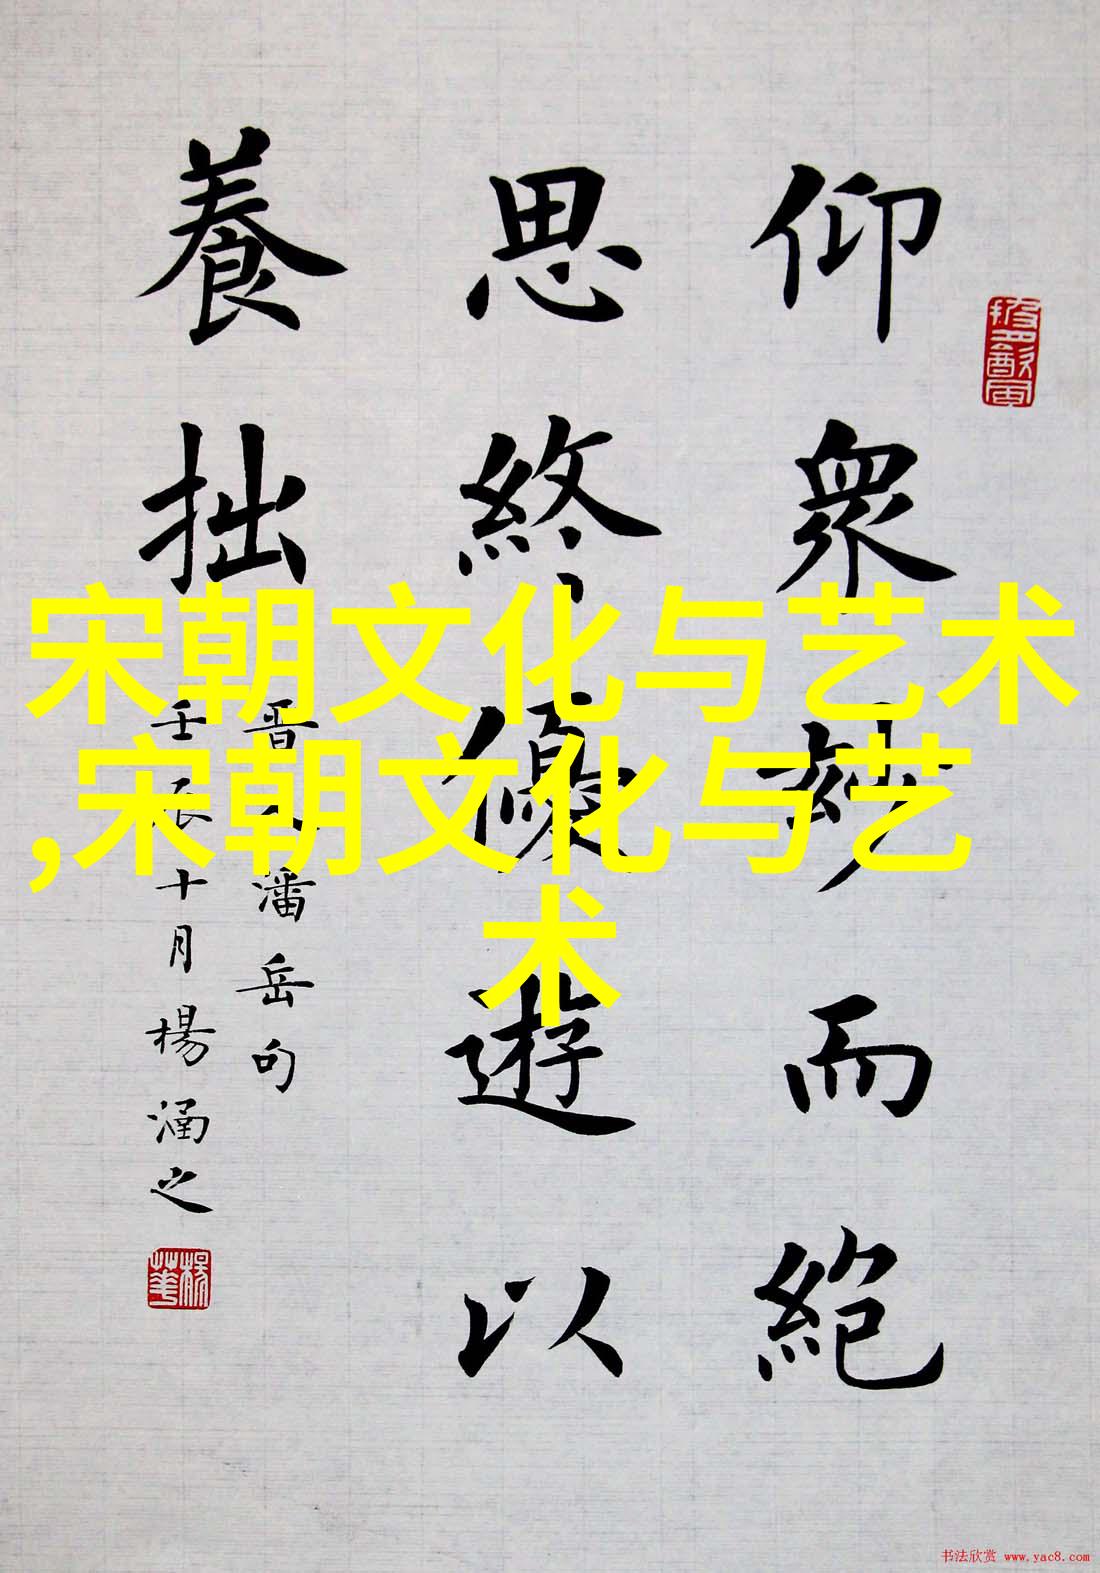 仰衆妙而絶
思終優遊以
養拙
晋人潘岳句
壬辰十月楊涵之
宋朝文化与艺术
,宋朝文化与艺
术
书法欣赏 www.yac8.com